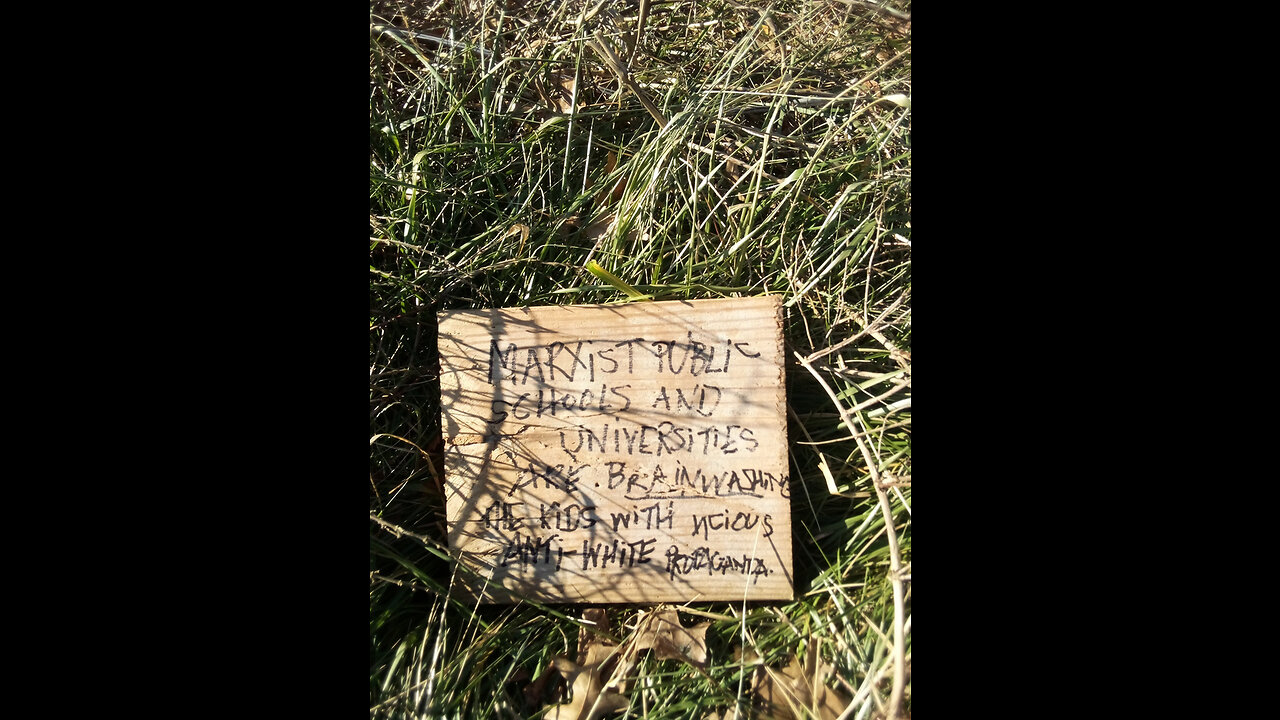 MARXiST PUBLiC
SCHOOLS AND
UNIVERSITIES
ARE. BRAINWASHING
THE KIDS WITH ViCiOUS
ANTi-WHITE PROPAGANDA.